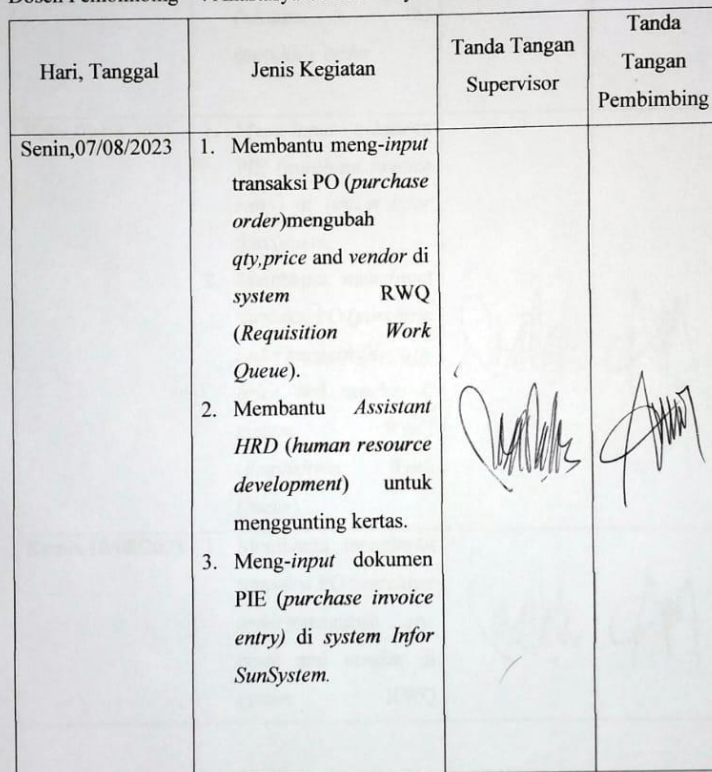 Hari, Tanggal
Jenis Kegiatan
Tanda Tangan
Supervisor
Tanda
Tangan
Pembimbing
Senin,07/08/2023
1. Membantu meng-input
transaksi PO (purchase
order)mengubah
qty,price and vendor di
system RWQ
(Requisition Work
Queue).
2. Membantu Assistant
HRD (human resource
development) untuk
menggunting kertas.
3. Meng-input dokumen
PIE (purchase invoice
entry) di system Infor
SunSystem.